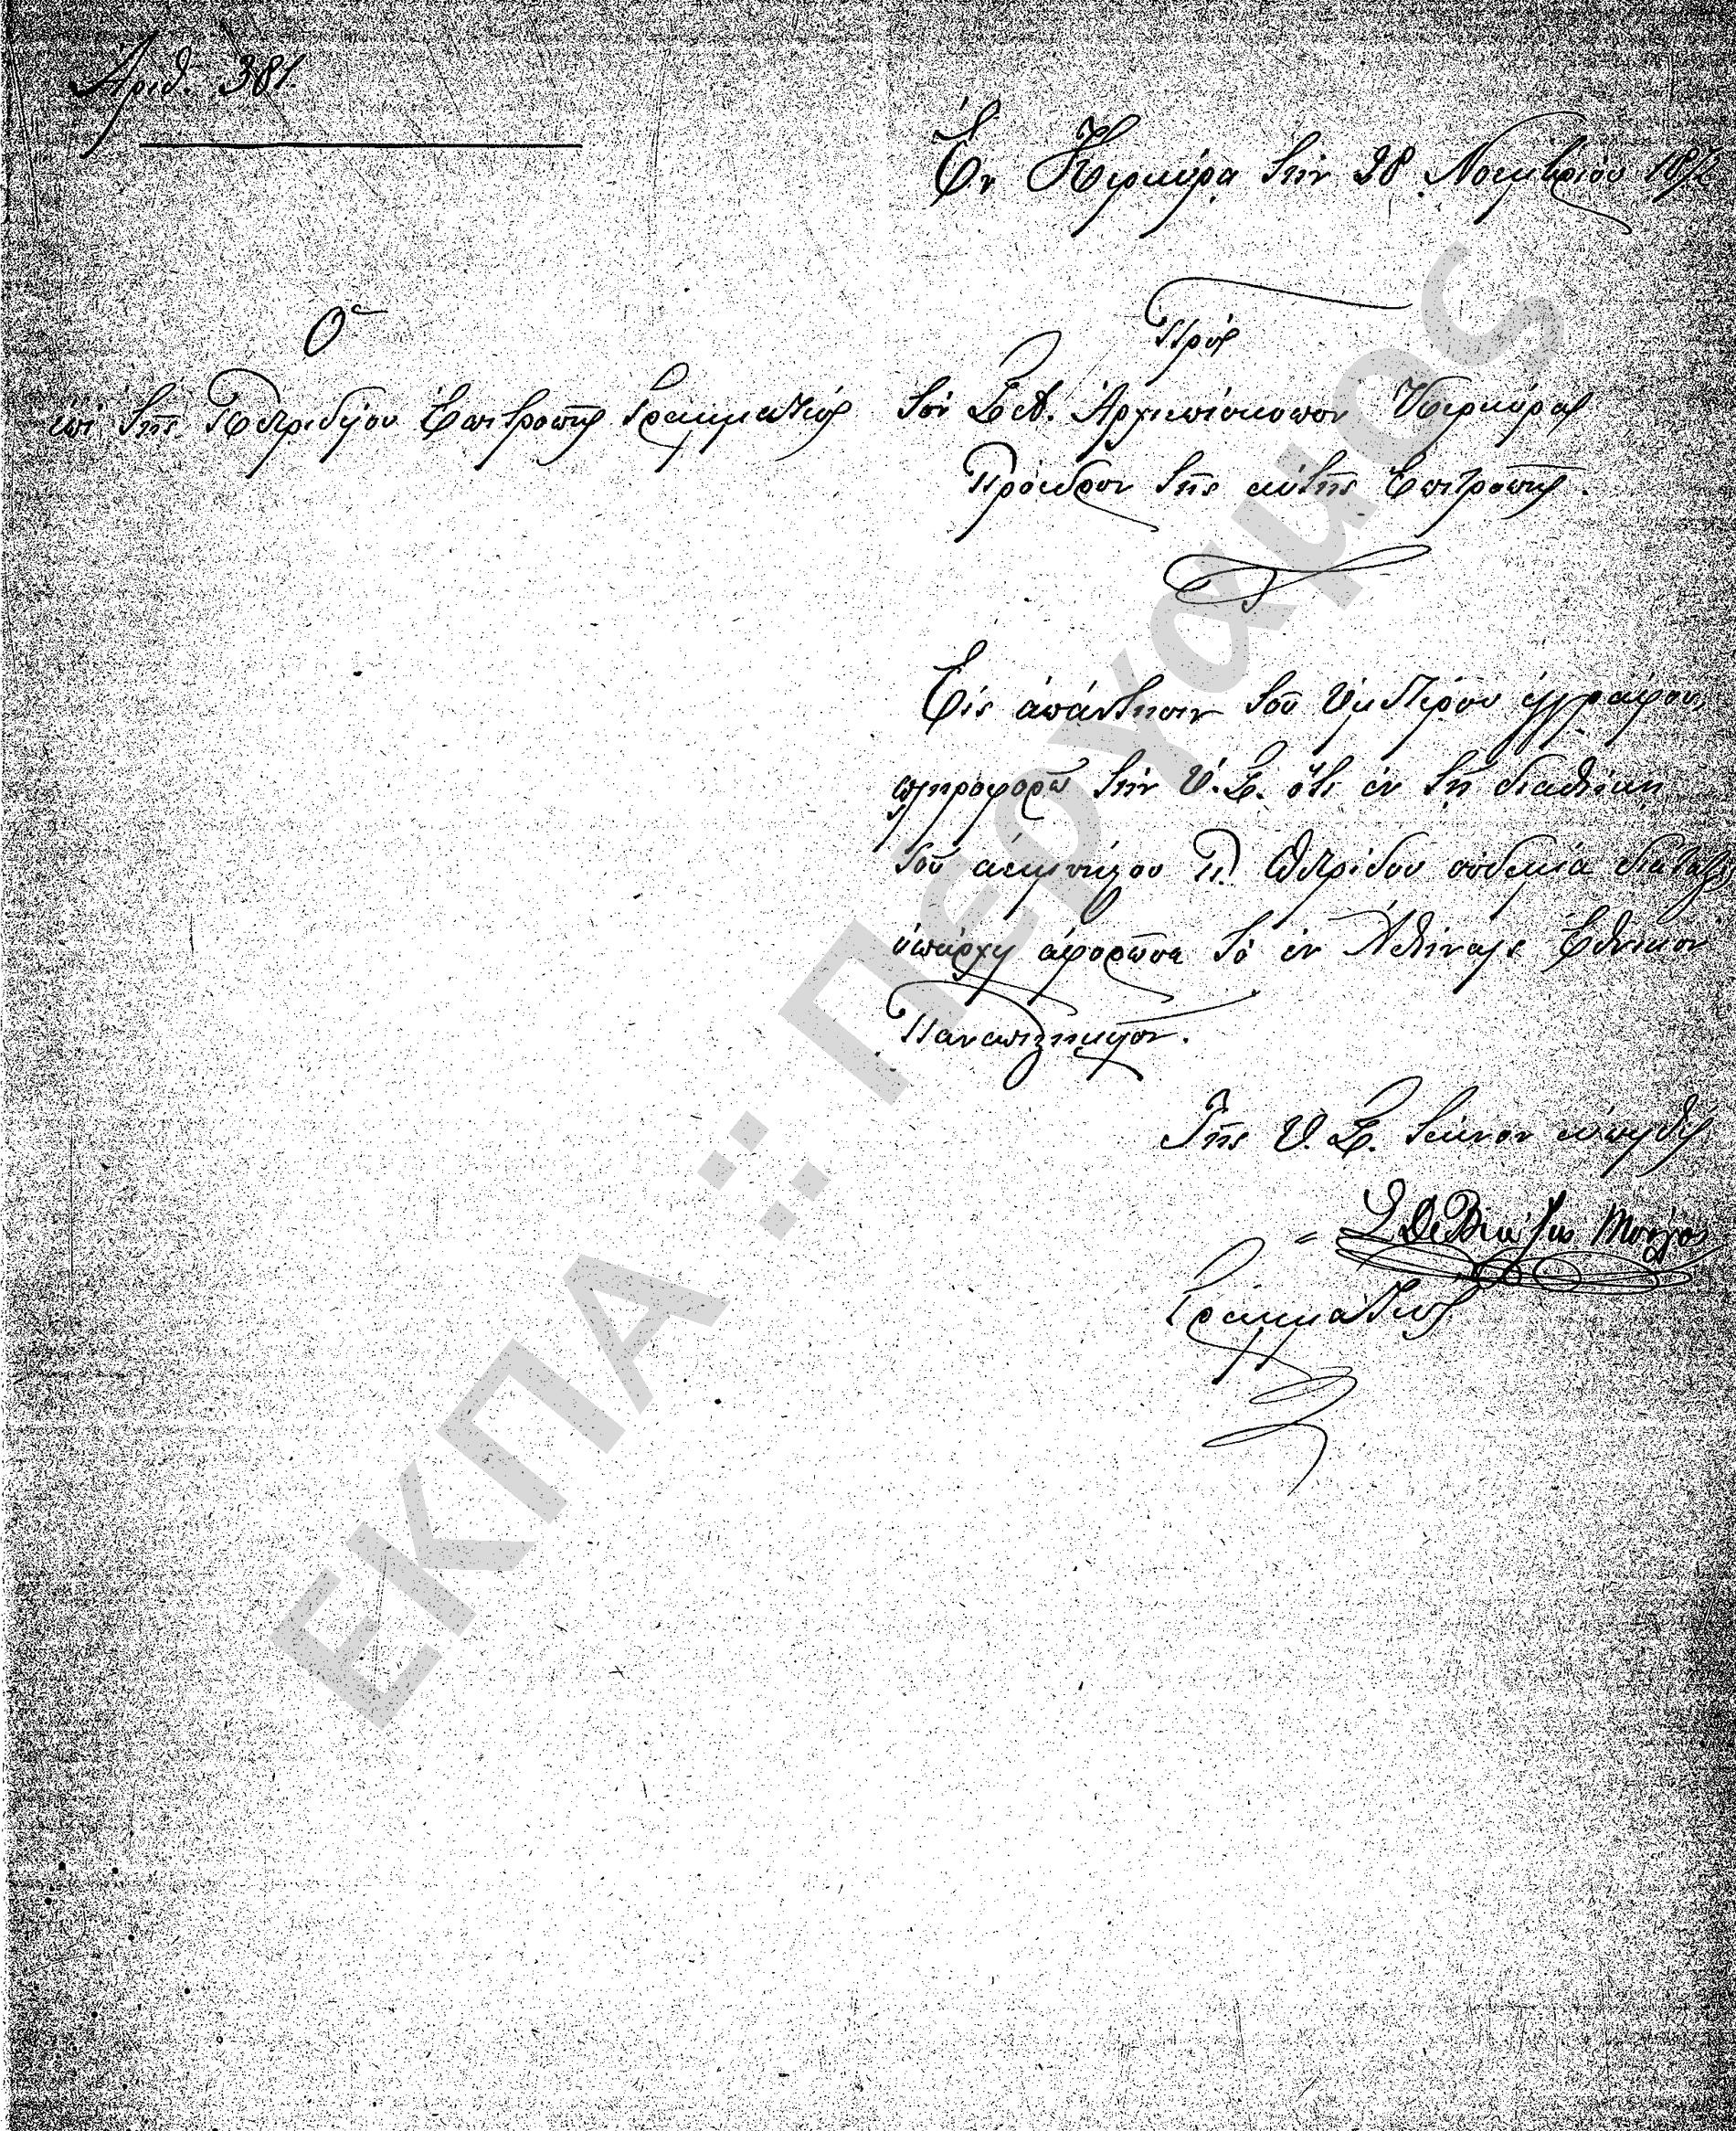 Ἀριθ. 381.
Ἐν Κερκύρᾳ τὴν 28 Νοεμβρίου 1872
Ὁ
ἐπὶ τῆς Πετριδείου Ἐπιτροπῆς Γραμματεύς
Πρός
τὸν Σεβ. Ἀρχιεπίσκοπον Κερκύρας
Πρόεδρον τῆς αὐτῆς Ἐπιτροπῆς.
Εἰς ἀπάντησιν τοῦ ὑμετέρου ἐγγράφου,
πληροφορῶ τὴν Υ.Σ. ὅτι ἐν τῇ διαθήκῃ
τοῦ ἀειμνήστου Π. Πετρίδου οὐδεμία διάταξις
ὑπάρχει ἀφορῶσα τὸ ἐν Ἀθήναις Ἐθνικὸν
Πανεπιστήμιον.
Τῆς Υ. Σ. τέκνον εὐπειθές
Σ Δε Βιάζης
Γραμματεύς
ΕΚΠΑ :: Πέργαμος